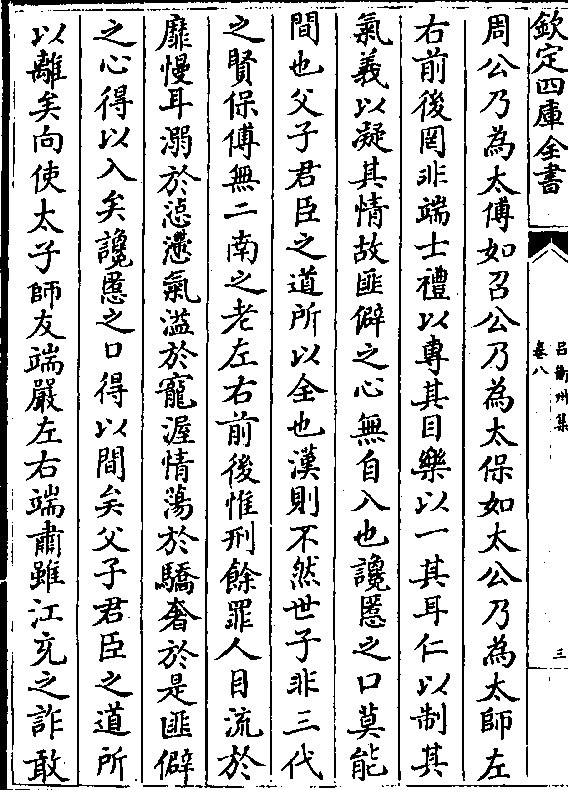 欽定四庫全書
呂衡州集
卷八
三
周公乃為太傅如召公乃為太保如太公乃為太師左
右前後罔非端士禮以專其目樂以一其耳仁以制其
氣義以凝其情故匪僻之心無自入也讒慝之口莫能
間也父子君臣之道所以全也漢則不然世子非三代
之賢保傅無二南之老左右前後惟刑餘罪人目流於
靡慢耳溺於惉懘氣溢於寵渥情蕩於驕奢於是匪僻
之心得以入矣讒慝之口得以間矣父子君臣之道所
以離矣向使太子師友端嚴左右端肅雖江充之詐敢